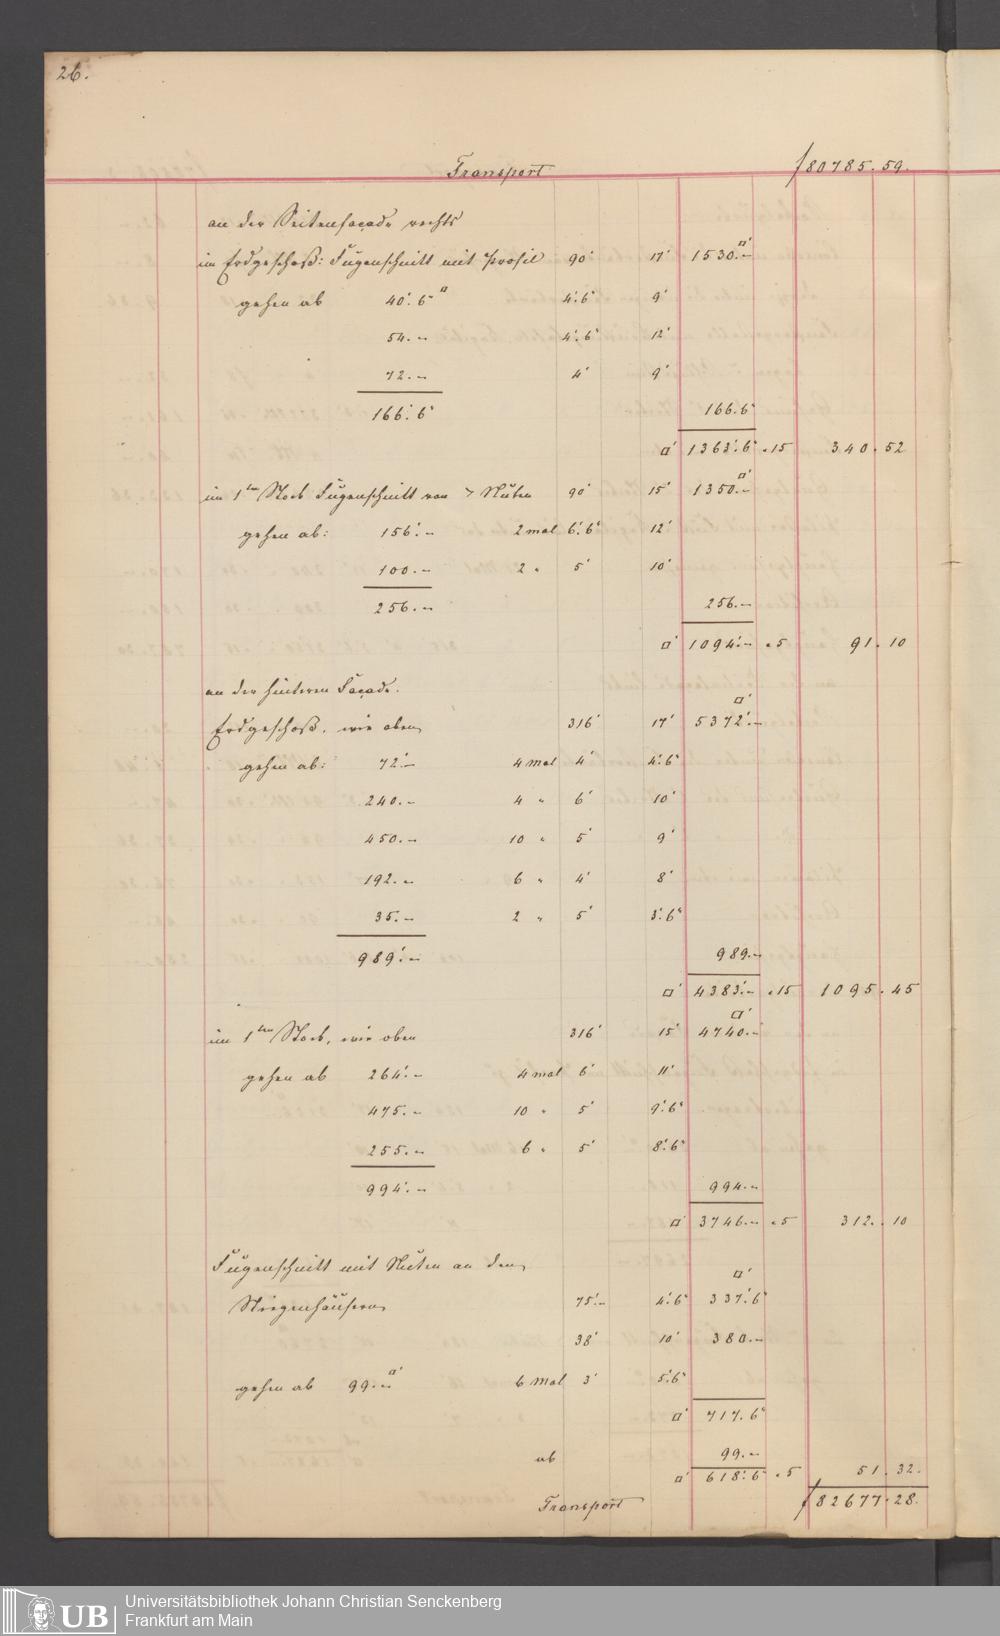 26.
Transport f 80785. 59.
an der Seitenfaçade rechts
im Erdgeschoß: Fugenschnitt mit Profil 90' 17' 1530.- □'
gehen ab 40'. 6" □ 4'. 6" 9'
54. - 4'. 6" 12'
72. - 4' 9'
166'. 6" 166. 6"
□' 1363'. 6" " 15 340. 52
im 1ten Stock Fugenschnitt von > Nuten 90' 15' 1350.- □'
gehen ab: 156'. - 2 mal 6'. 6" 12'
100. - 2 " 5' 10'
256. - 256. -
□' 1094'. - " 5 91. 10
an der hinteren Façade.
Erdgeschoß, wie oben 316' 17' 5372'. - □'
gehen ab: 72'. - 4 mal 4' 4'. 6"
240. - 4 " 6' 10'
450. - 10 " 5' 9'
192. - 6 " 4' 8'
35'. - 2 " 5' 3'. 6"
989'. - 989. -
□' 4383'. - " 15 1095. 45
im 1ten Stock, wie oben 316' 15' 4740. - □'
gehen ab 264'. - 4 mal 6' 11'
475. - 10 " 5' 9'. 6"
255. - 6 " 5' 8'. 6"
994'. - 994. -
□' 3746. - " 5 312. 10
Fugenschnitt mit Nuten an den
Stiegenhäusern 75'. - 4'. 6" 337'. 6" □'
38' 10' 380. -
gehen ab 99. - □' 6 Mal 3' 5'. 6"
□' 717. 6"
ab 99. -
□' 618'. 6" " 5 51. 32.
Transport f 82677. 28.
UB
Universitätsbibliothek Johann Christian Senckenberg
Frankfurt am Main